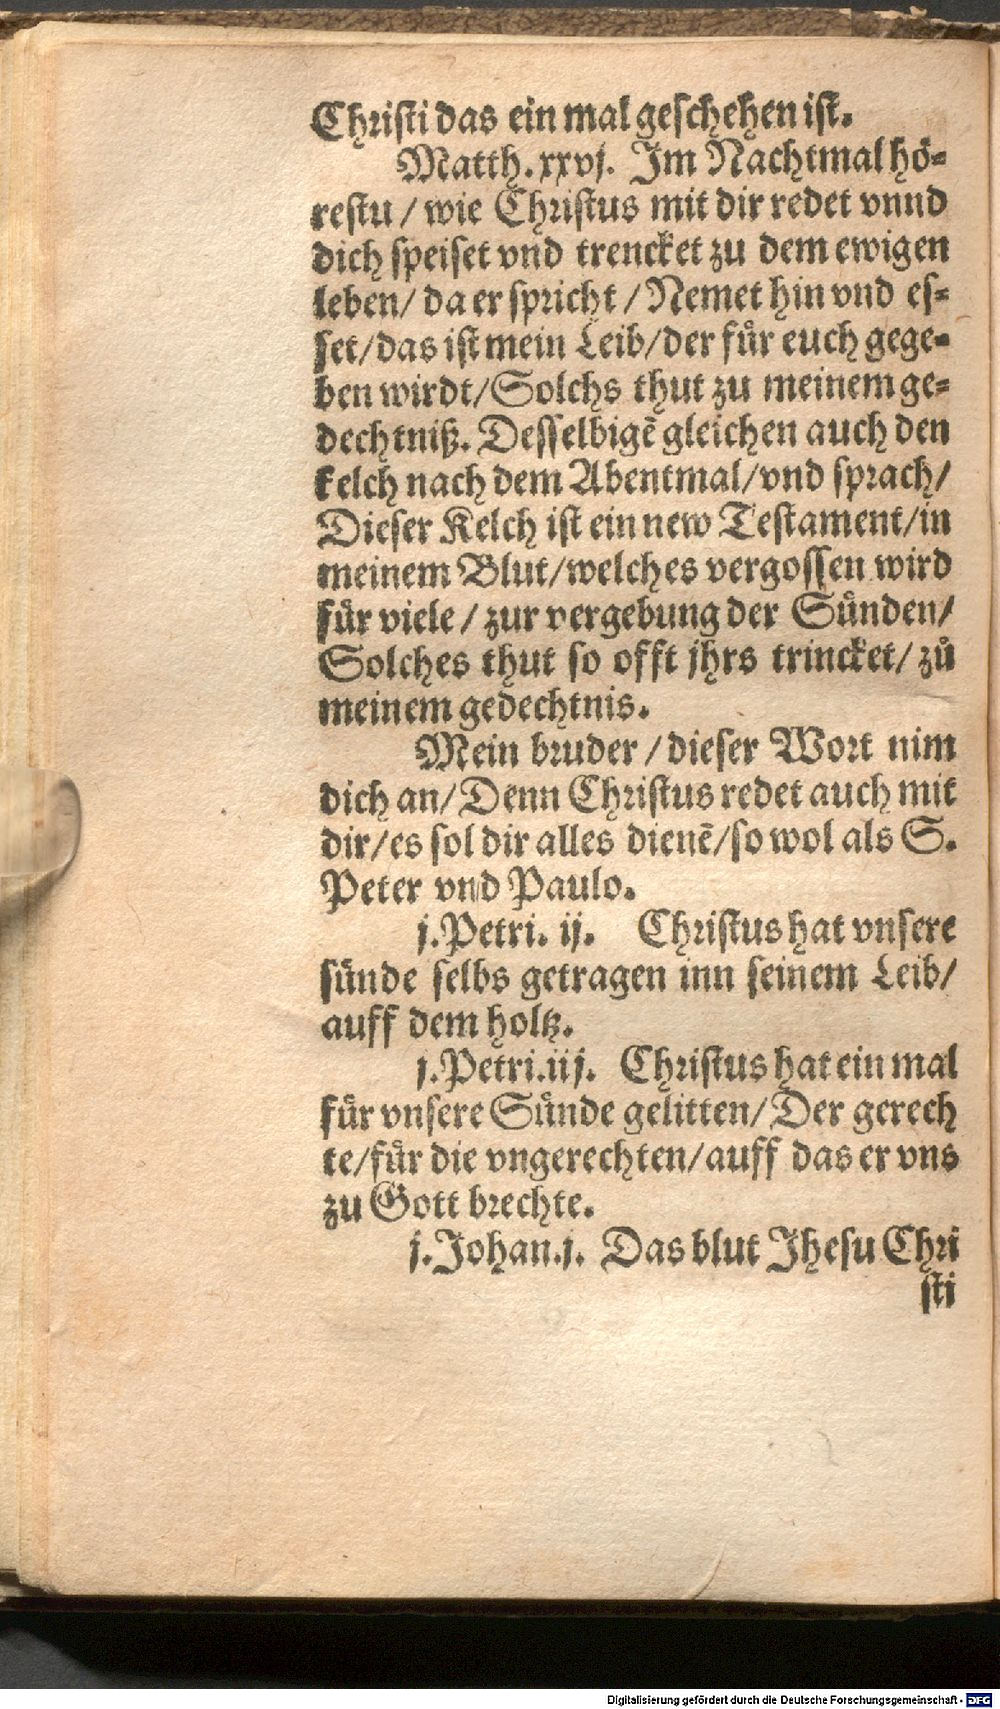 Christi das ein mal geschehen ist.
Matth. xxvj. Im Nachtmal hö-
restu / wie Christus mit dir redet vnnd
dich speiset vnd trencket zu dem ewigen
leben / da er spricht / Nemet hin vnd es-
set / das ist mein Leib / der für euch gege-
ben wirdt / Solchs thut zu meinem ge-
dechtniß. Desselbigẽ gleichen auch den
kelch nach dem Abentmal / vnd sprach /
Dieser Kelch ist ein new Testament / in
meinem Blut / welches vergossen wird
für viele / zur vergebung der Sünden /
Solches thut so offt jhrs trincket / zů
meinem gedechtnis.
Mein bruder / dieser Wort nim
dich an / Denn Christus redet auch mit
dir / es sol dir alles dienẽ / so wol als S.
Peter vnd Paulo.
j. Petri. ij. Christus hat vnsere
sünde selbs getragen inn seinem Leib /
auff dem holtz.
j. Petri. iij. Christus hat ein mal
für vnsere Sünde gelitten / Der gerech
te / für die vngerechten / auff das er vns
zu Gott brechte.
j. Johan. j. Das blut Jhesu Chri
sti
Digitalisierung gefördert durch die Deutsche Forschungsgemeinschaft - DFG